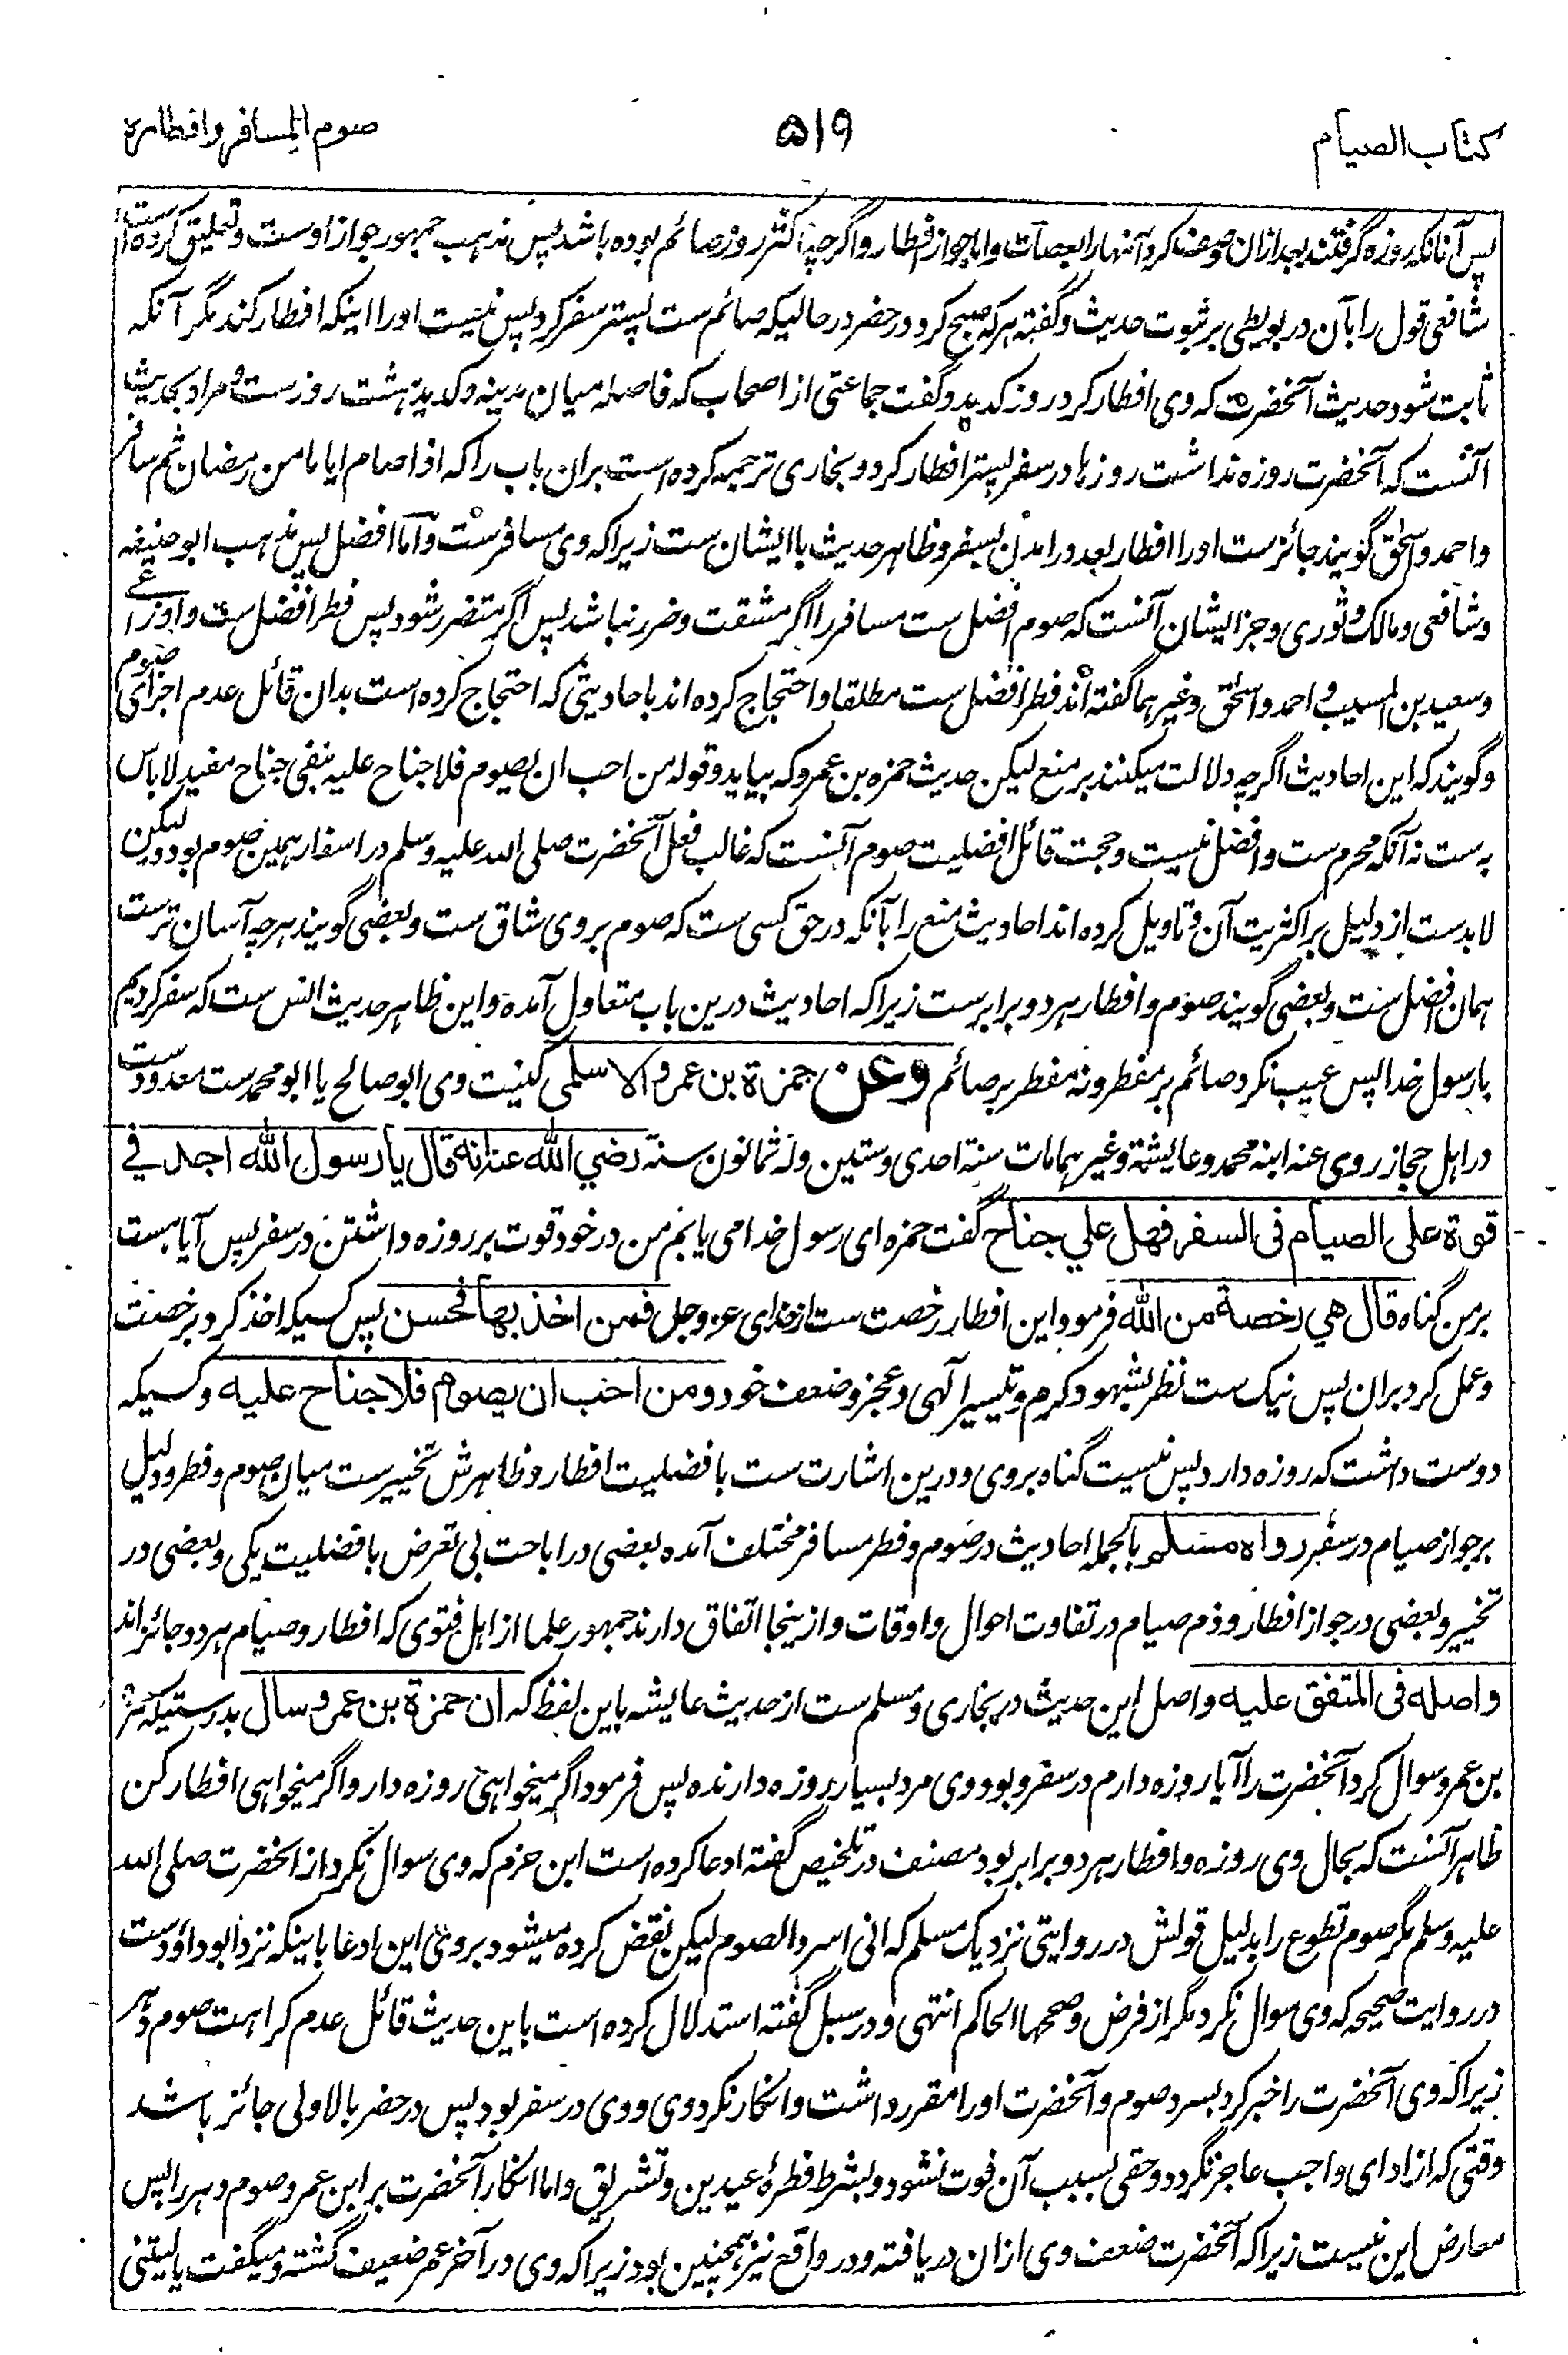 کتاب الصیام
۵۱۹
صوم المسافر وافطاره
پس آنانکه روزه گرفتند بعد ازان وصف کرد آنها را بعصات واما جواز افطار واگرچه اکثر روز صائم بوده باشد پس مذهب جمهور جواز اوست وتعلیق کرده است
شافعی قول را بآن در بویطی بر ثبوت حدیث وگفته هرکه صبح کرد در حضر در حالیکه صائم ست پستر سفر کرد پس نیست او را اینکه افطار کند مگر آنکه
ثابت شود حدیث آنحضرت که وی افطار کرد روز کدید وگفت جماعتی از اصحاب که فاصله میان مدینه وکدید هشت روز ست ومراد بحدیث
آنست که آنحضرت روزه نداشت روزها در سفر پستر افطار کرد وبخاری ترجمه کرده است بران باب را که اذا صام ایاما من رمضان ثم سافر
واحمد واسحٰق گویند جائز ست او را افطار بعد در آمدن بسفر وظاهر حدیث با ایشان ست زیراکه وی مسافر ست واما افضل پس مذهب ابو حنیفه
وشافعی ومالک وثوری وجز ایشان آنست که صوم افضل ست مسافر را اگر مشقت وضرر نباشد پس اگر متضرر شود پس فطر افضل ست واوزاعی
وسعید بن المسیب واحمد واسحٰق وغیرهما گفته اند فطر افضل ست مطلقا واحتجاج کرده اند باحادیثی که احتجاج کرده است بدان قائل عدم اجزای صوم
وگویند که این احادیث اگرچه دلالت میکنند بر منع لیکن حدیث حمزه بن عمرو که بیاید وقوله من احب ان یصوم فلا جناح علیه بنفی جناح مفید لا باس
به ست نه آنکه محرم ست وافضل نیست وحجت قائل افضلیت صوم آنست که غالب فعل آنحضرت صلی الله علیه وسلم در اسفار همین صوم بود ولیکن
لا بد ست از دلیل بر اکثریت آن وتاویل کرده اند احادیث منع را بآنکه در حق کسی ست که صوم بر وی شاق ست وبعضی گویند هرچه آسان تر ست
همان افضل ست وبعضی گویند صوم وافطار هر دو برابر ست زیراکه احادیث درین باب متعادل آمده واین ظاهر حدیث انس ست که سفر کردیم
با رسول خدا پس عیب نکرد صائم بر مفطر ونه مفطر بر صائم وعن حمزة بن عمرو الاسلمی کنیت وی ابو صالح یا ابو محمد ست معدود ست
در اهل حجاز روی عنه ابنه محمد وعایشة وغیرهما مات سنة احدی وستین وله ثمانون سنة رضي الله عنه انه قال یا رسول الله اجد فی
قوة علی الصیام فی السفر فهل علي جناح گفت حمزه ای رسول خدا می یابم من در خود قوت بر روزه داشتن در سفر پس آیا هست
بر من گناه قال هي رخصة من الله فرمود این افطار رخصت ست از خدای عز وجل فمن اخذ بها فحسن پس کسیکه اخذ کرد برخصت
وعمل کرد بران پس نیک ست نظر بشهود کرم وتیسیر آلهی وعجز وضعف خود ومن احب ان یصوم فلا جناح علیه وکسیکه
دوست داشت که روزه دارد پس نیست گناه بر وی ودرین اشارت ست بافضلیت افطار وظاهرش تخییر ست میان صوم وفطر ودلیل
بر جواز صیام در سفر رواه مسلم بالجمله احادیث در صوم وفطر مسافر مختلف آمده بعضی در اباحت بی تعرض بافضلیت یکی وبعضی در
تخییر وبعضی در جواز افطار وذم صیام در تفاوت احوال واوقات وازینجا اتفاق دارند جمهور علما از اهل فتوی که افطار وصیام هر دو جائز اند
واصله فی المتفق علیه واصل این حدیث در بخاری ومسلم ست از حدیث عایشه باین لفظ که ان حمزة بن عمرو سال بدرستیکه حمزه
بن عمرو سوال کرد آنحضرت را آیا روزه دارم در سفر وبود وی مرد بسیار روزه دارنده پس فرمود اگر میخواهی روزه دار واگر میخواهی افطار کن
ظاهر آنست که بحال وی روزه وافطار هر دو برابر بود مصنف در تلخیص گفته ادعا کرده است ابن حزم که وی سوال نکرد از آنحضرت صلی الله
علیه وسلم مگر صوم تطوع را بدلیل قولش در روایتی نزدیک مسلم که انی اسرد الصوم لیکن نقض کرده میشود بر وی این ادعا باینکه نزد ابو داؤد ست
در روایت صحیحه که وی سوال نکرد مگر از فرض وصححها الحاکم انتهی ودر سبل گفته استدلال کرده است باین حدیث قائل عدم کراهت صوم دهر
زیراکه وی آنحضرت را خبر کرد بسرد صوم وآنحضرت او را مقرر داشت وانکار نکرد وی ووی در سفر بود پس در حضر بالاولی جائز باشد
وقتی که از ادای واجب عاجز نگردد وحقی بسبب آن فوت نشود وبشرط فطر عیدین وتشریق واما انکار آنحضرت بر ابن عمرو صوم دهر را پس
معارض این نیست زیراکه آنحضرت ضعف وی ازان دریافته ودر واقع نیز همچنین بود زیراکه وی در آخر عمر ضعیف گشته ومیگفت یا لیتنی